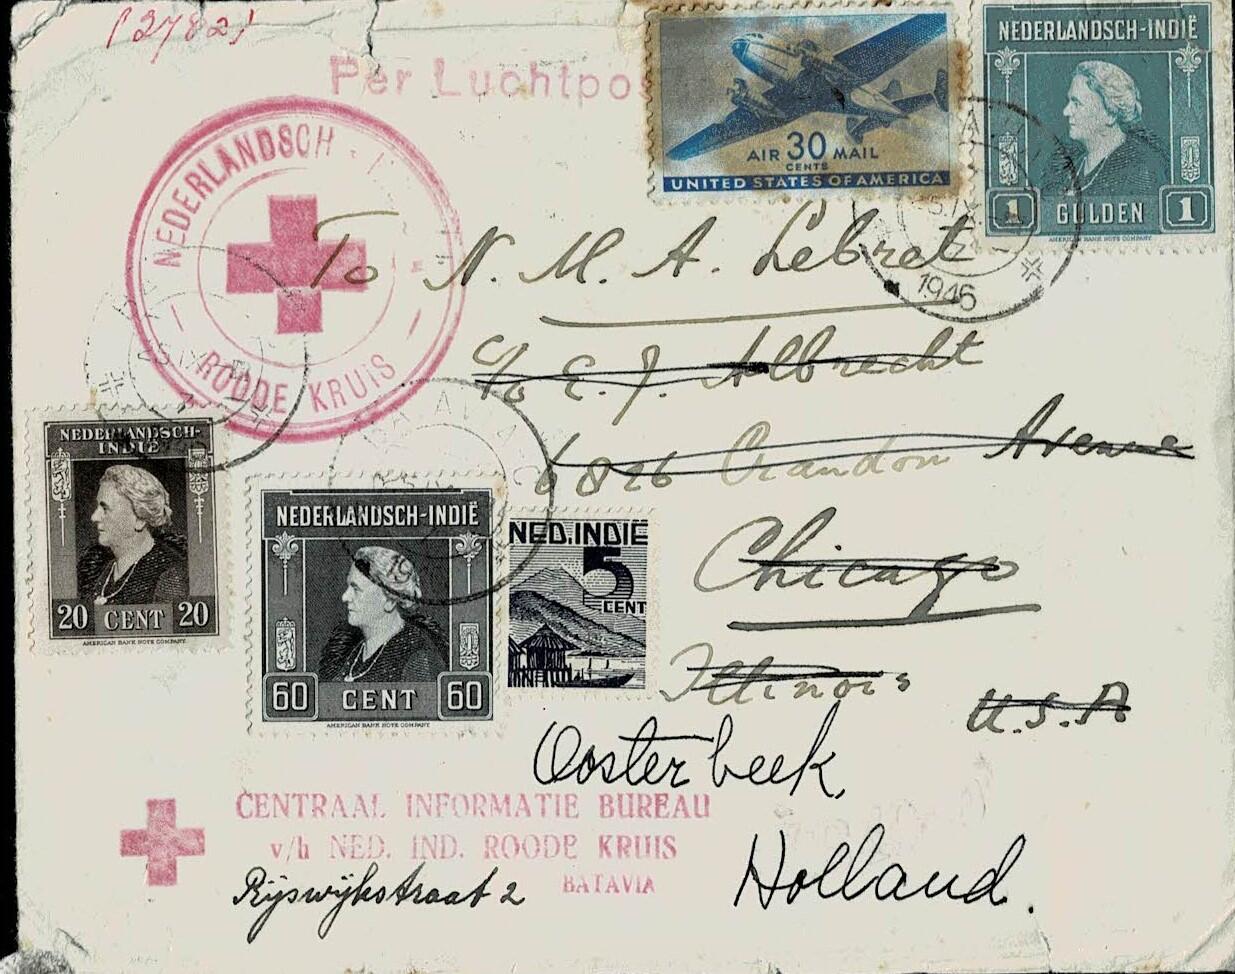 (3782)
Per Luchtpos
AIR 30 MAIL
CENTS
UNITED STATES OF AMERICA
NEDERLANDSCH-INDIË
1 GULDEN 1
AMERICAN BANK NOTE COMPANY
1946
NEDERLANDSCH - I
ROODE KRUIS
To N. M. A. Lebret
c/o E. J. Albrecht
6826 Crandon Avenue
Chicago
Illinois
U.S.A
NEDERLANDSCH-
INDIË
20 CENT 20
AMERICAN BANK NOTE COMPANY
NEDERLANDSCH-INDIË
60 CENT 60
AMERICAN BANK NOTE COMPANY
NED. INDIË
5
CENT
Oosterbeek,
Holland.
CENTRAAL INFORMATIE BUREAU
v/h NED. IND. ROODE KRUIS
BATAVIA
Rijswijkstraat 2